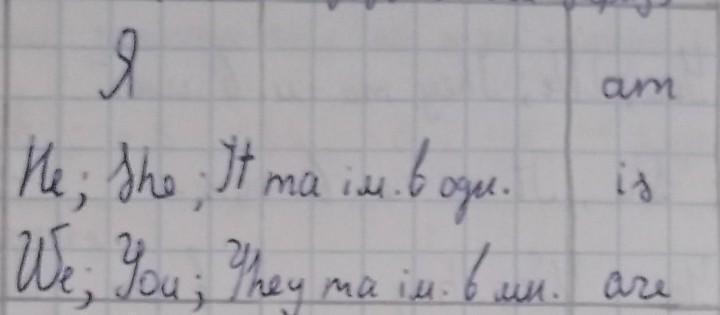 Я am
He; She; It та ім. в одн. is
We; You; They та ім. в мн. are